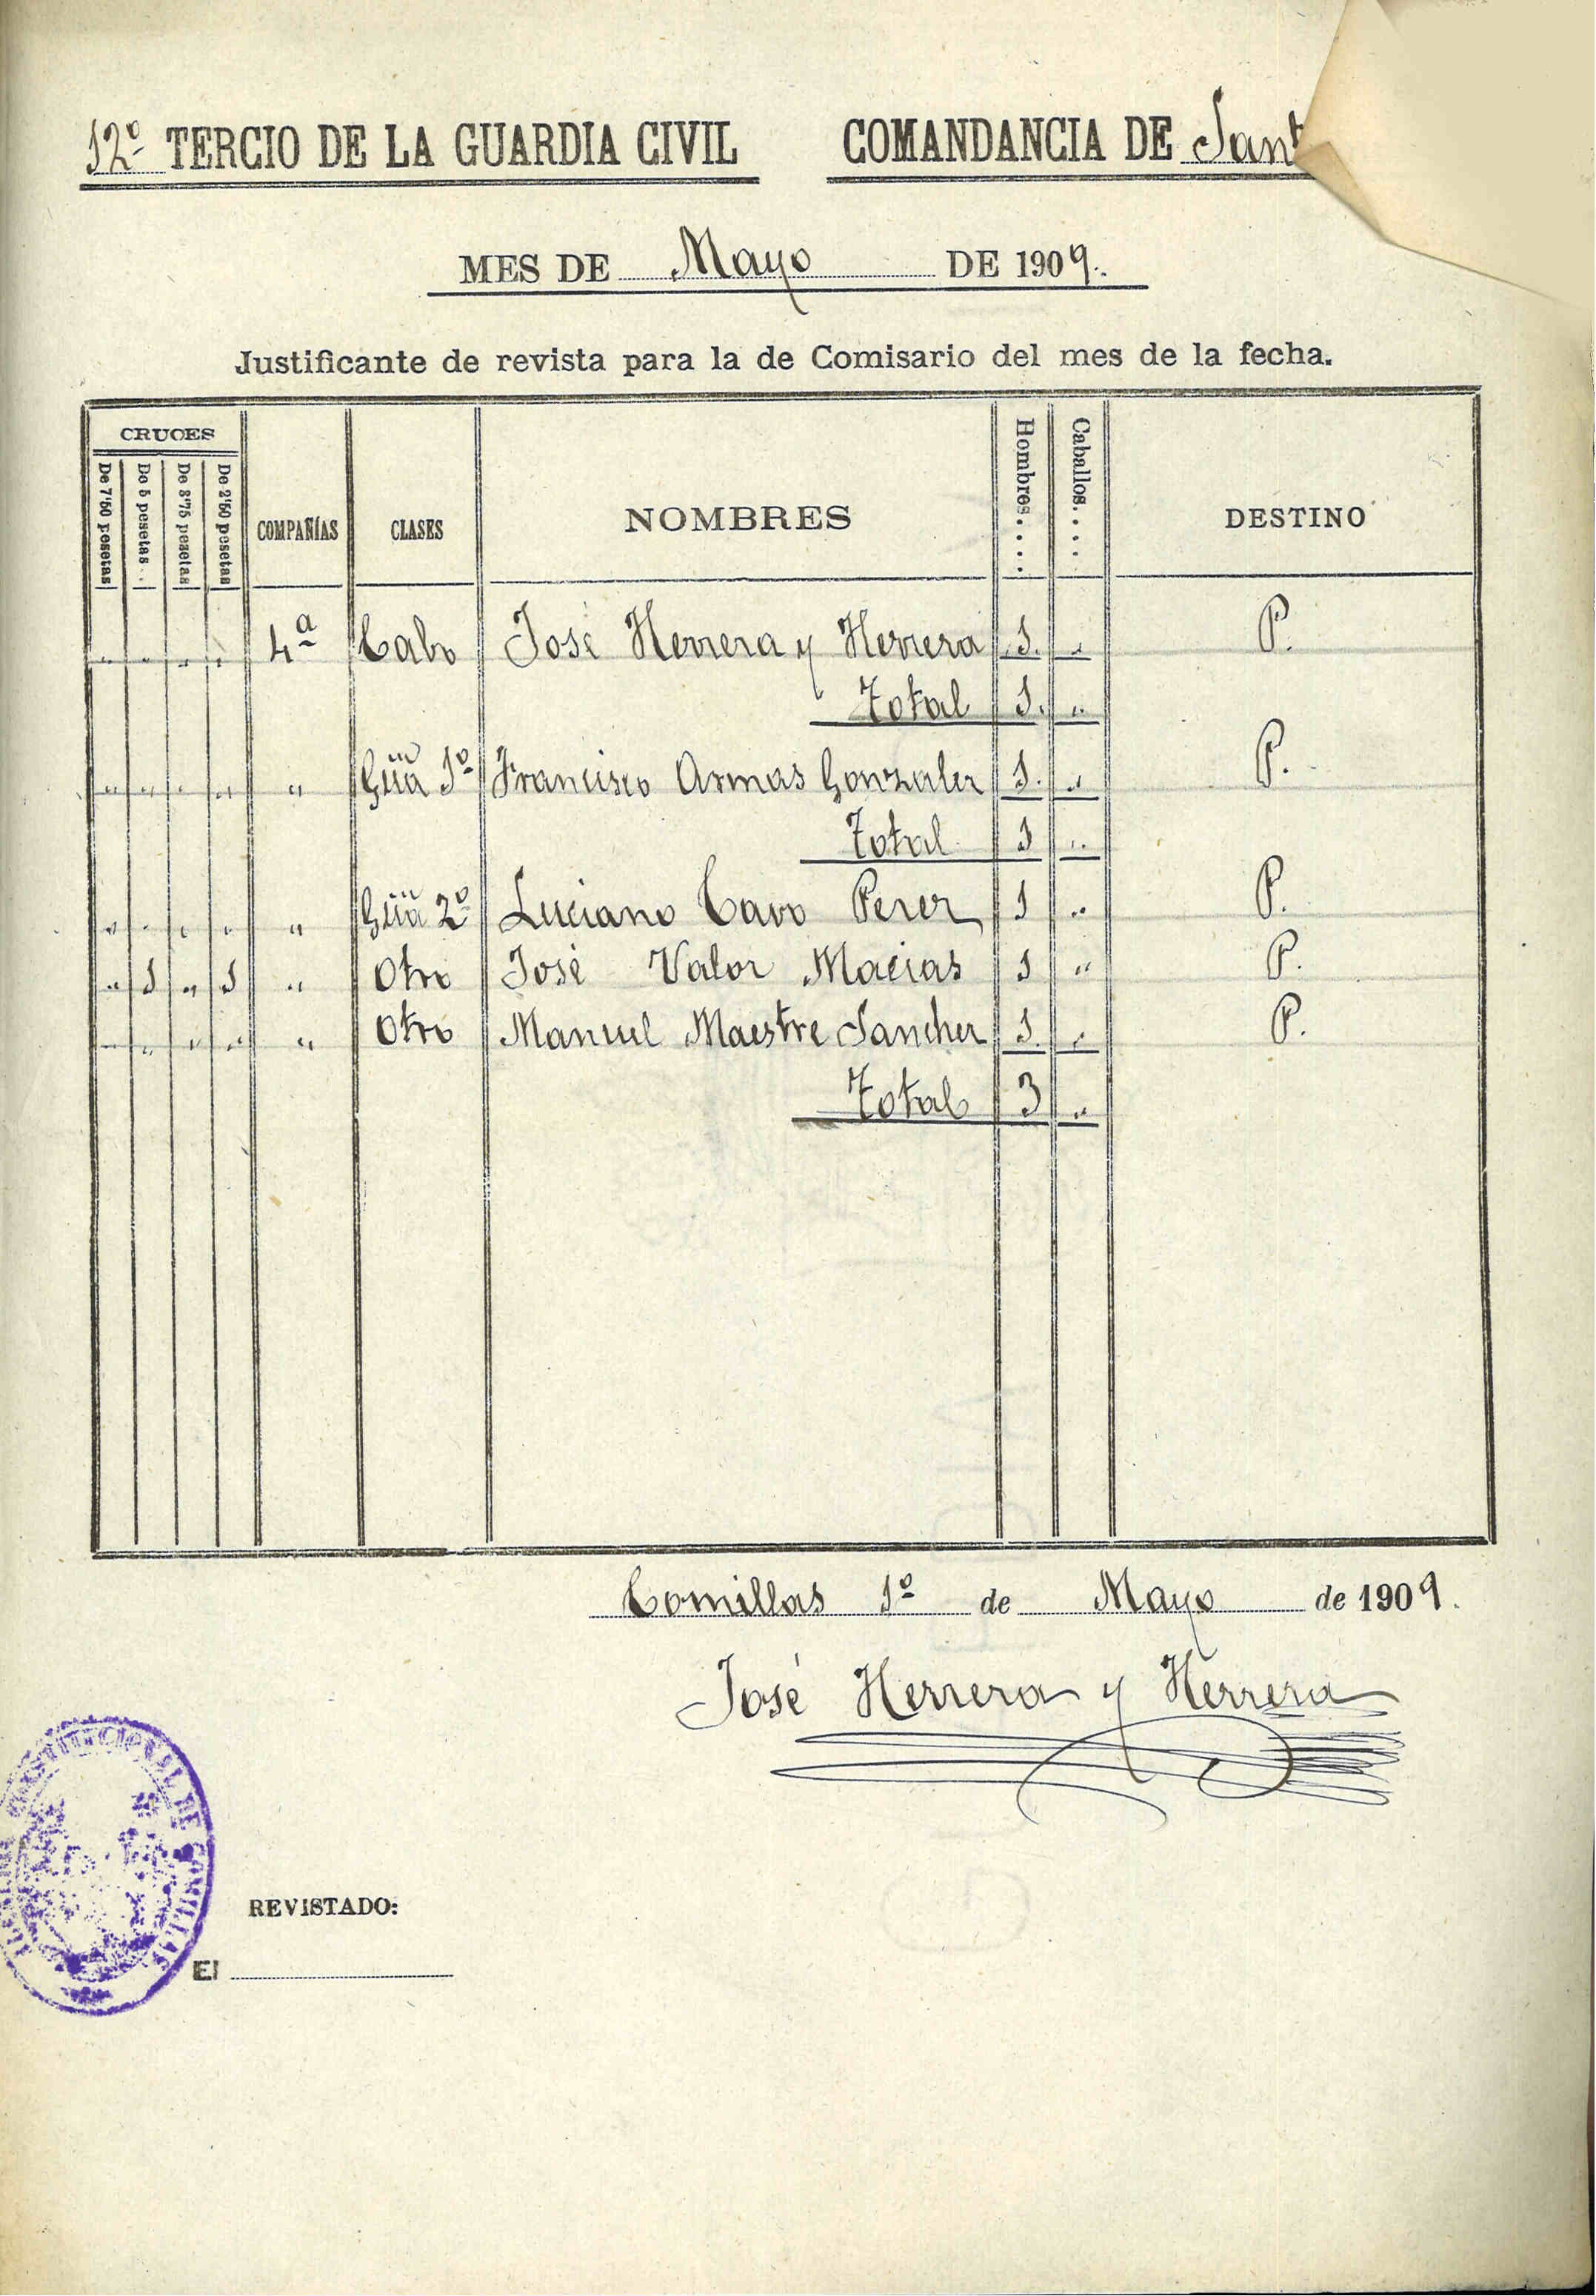 12º TERCIO DE LA GUARDIA CIVIL COMANDANCIA DE Sant
MES DE Mayo DE 1909.
Justificante de revista para la de Comisario del mes de la fecha.
CRUCES
De 7'50 pesetas
De 5 pesetas..
De 3'75 pesetas
De 2'50 pesetas
COMPAÑÍAS
CLASES
NOMBRES
Hombres....
Caballos....
DESTINO
" " " " 4ª Cabo José Herrera y Herrera 1. " P.
Total 1. "
" " " " " Güa 1º Francisco Armas Gonzalez 1. " P.
Total 1 "
" " " " " Güa 2º Luciano Cavo Perez 1 " P.
" 1 " 1 " Otro José Valor Macias 1 " P.
" " " " " Otro Manuel Maestre Sanchez 1. " P.
Total 3 "
Comillas 1º de Mayo de 1909.
José Herrera y Herrera
CONSTITUCIONAL DE COMILLAS
REVISTADO:
El